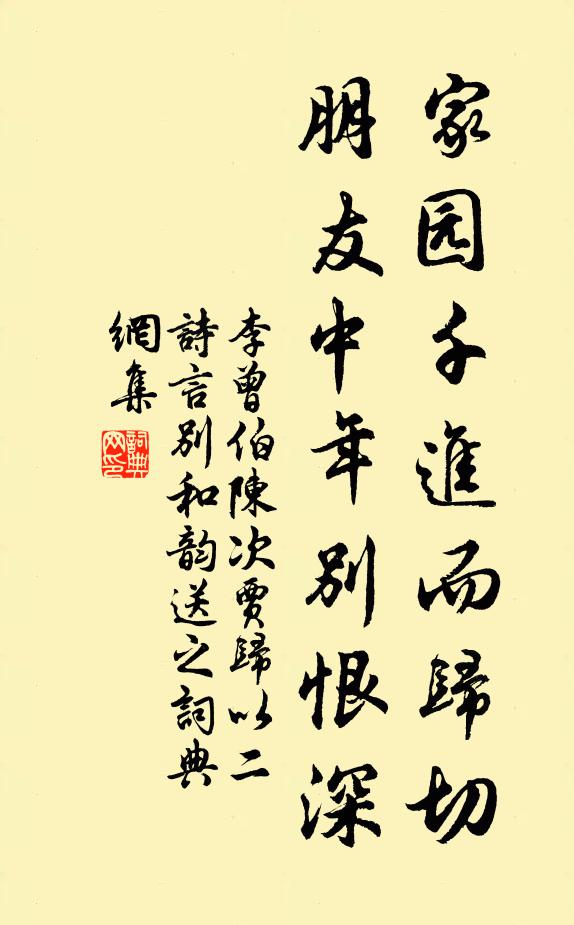 家园千進而歸切
朋友中年别恨深
李曾伯陳次賈歸以二
詩言别和韵送之詞典
網集
詞典網印